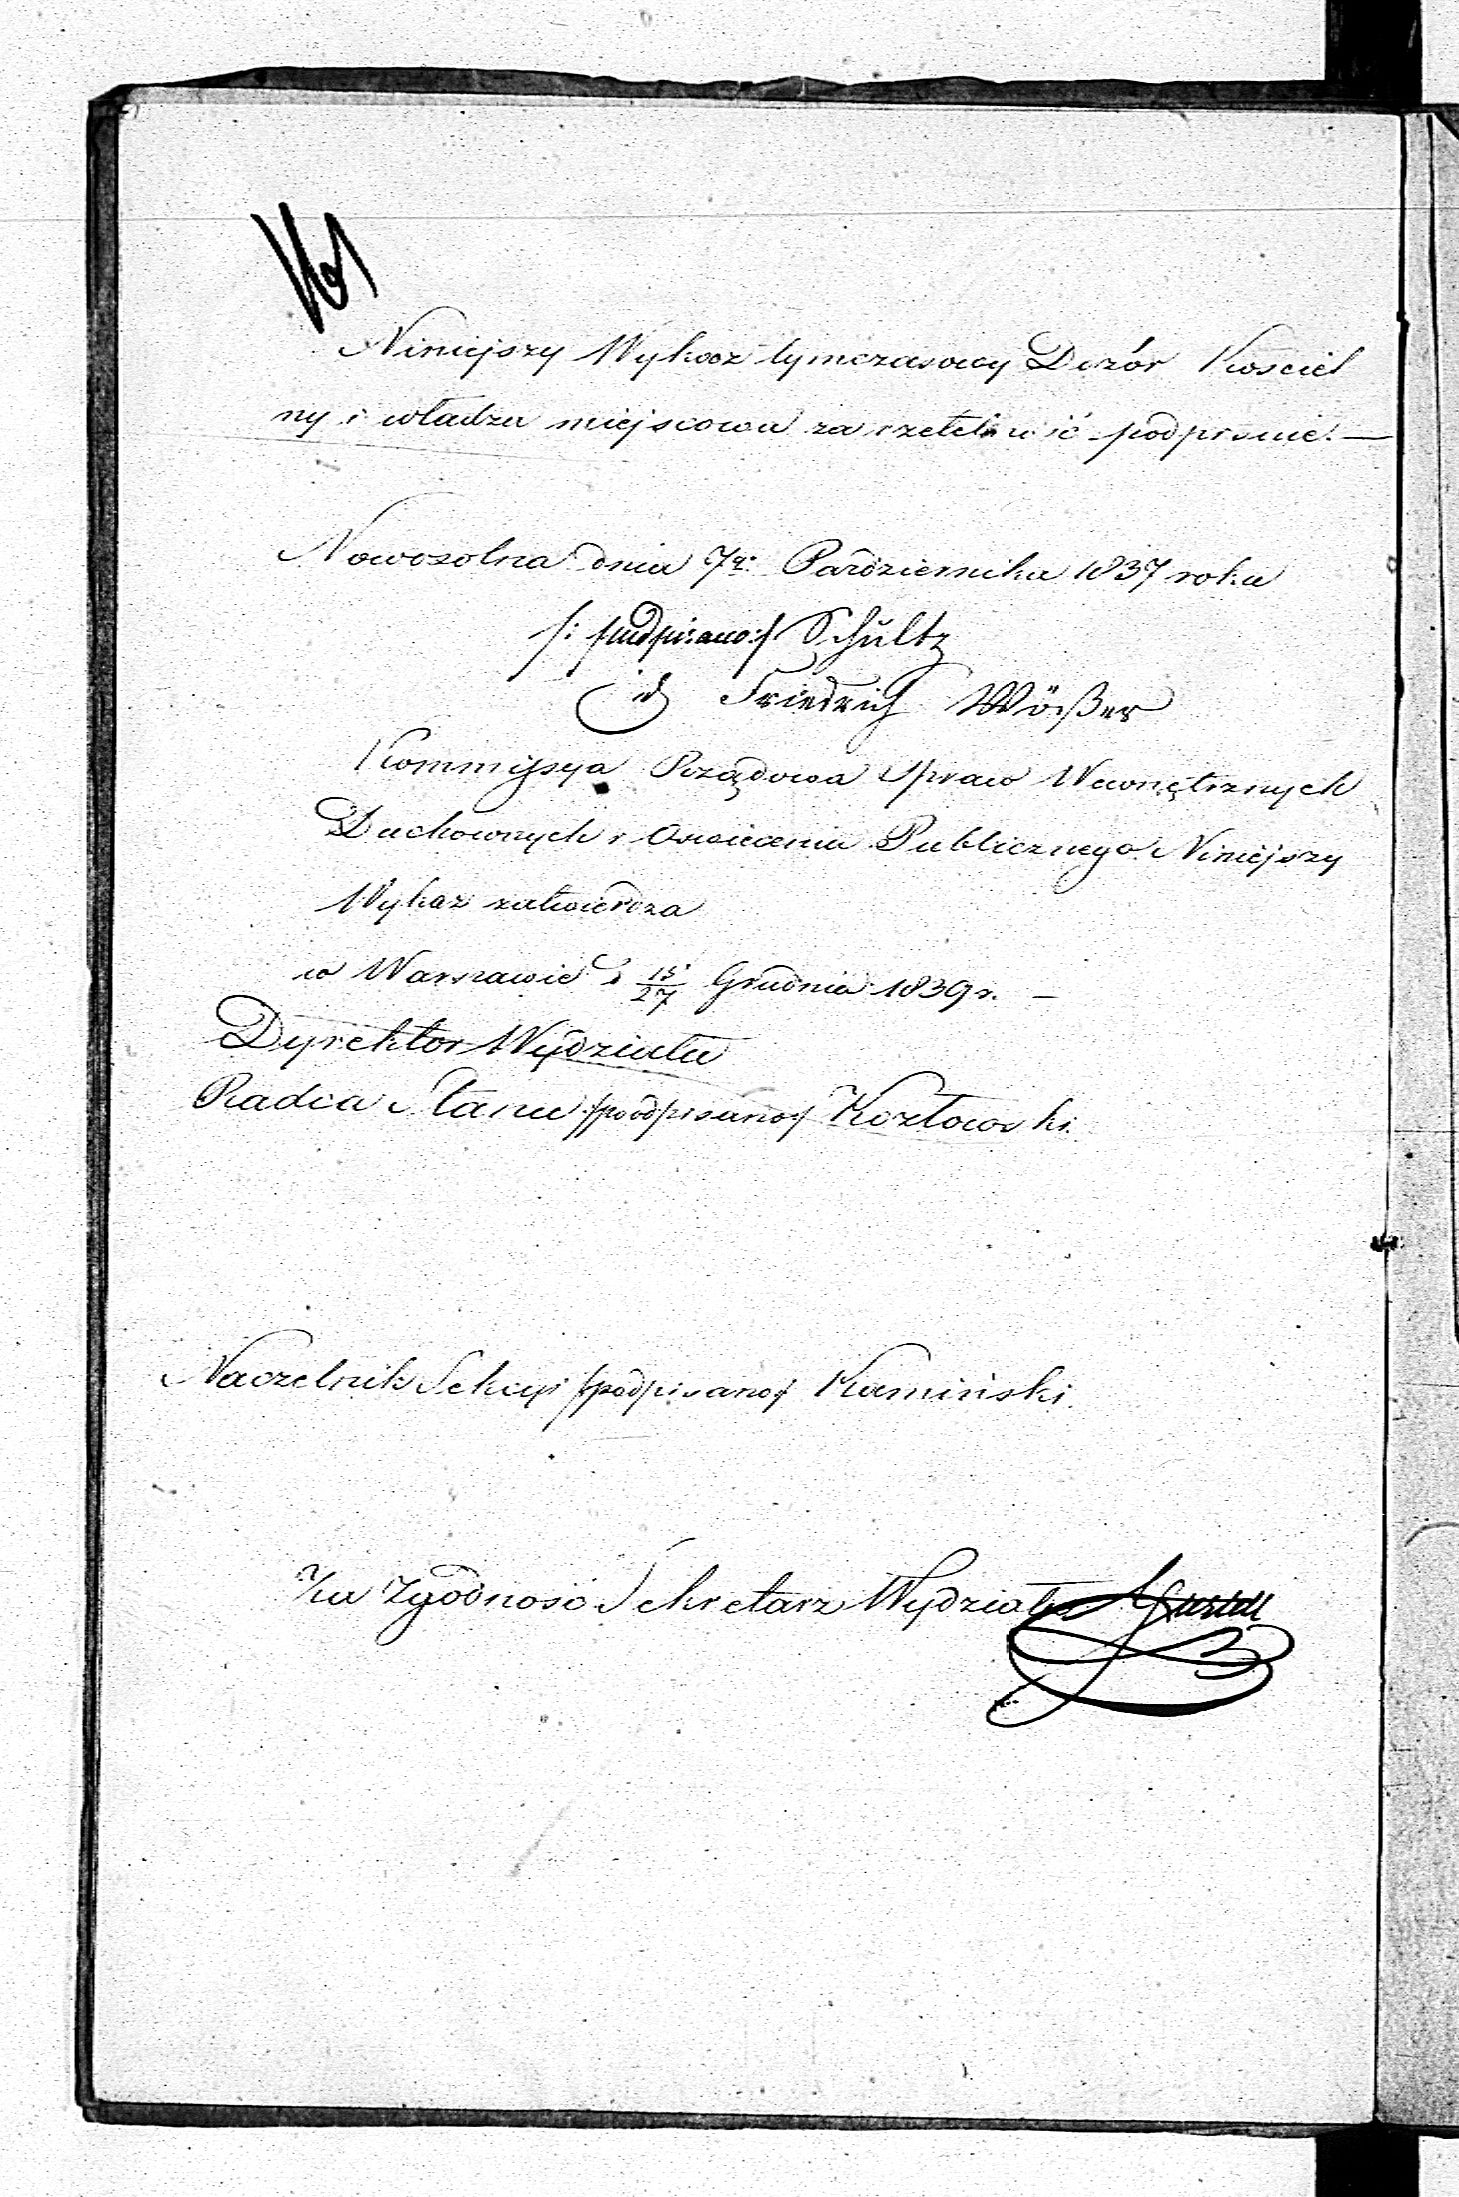 Niniejszy Wykaz tymczasowy Dozór Kościel
ny i władza miejscowa za rzetelność podpisuie. —
Nowosolna dnia 7go Października 1837 roku
/: podpisano :/ Schultz
Friedrich Wößer
Kommissya Rządowa Spraw Wewnętrznych
Duchownych i Oswiecenia Publicznego Niniejszy
Wykaz zatwierdza
w Warszawie d 15/27 Grudnia 1839 r. —
Dyrektor Wydziału
Radca Stanu /podpisano/ Kozłowski
Naczelnik Sekcyi /podpisano/ Kamiński
Za Zgodność Sekretarz Wydziału